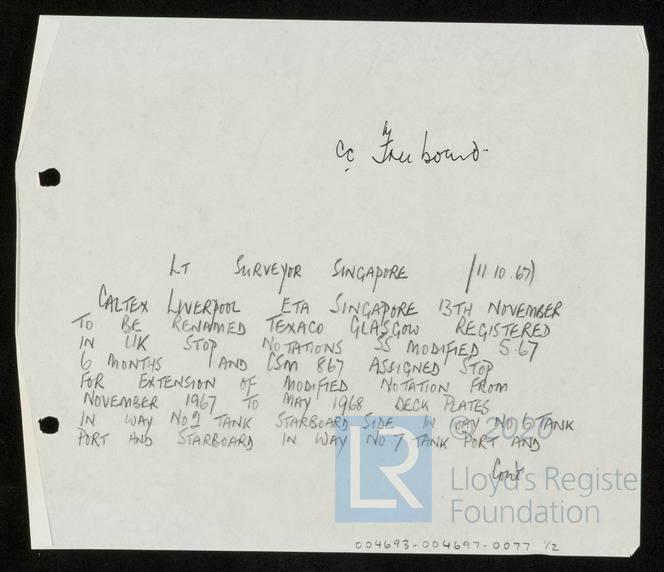 cc Freeboard
LT SURVEYOR SINGAPORE (11.10.67)
CALTEX LIVERPOOL ETA SINGAPORE 13TH NOVEMBER
TO BE RENAMED TEXACO GLASGOW REGISTERED
IN UK STOP NOTATIONS SS MODIFIED 5.67
6 MONTHS AND CSM 867 ASSIGNED STOP
FOR EXTENSION OF MODIFIED NOTATION FROM
NOVEMBER 1967 TO MAY 1968 DECK PLATES
IN WAY NO 2 TANK STARBOARD SIDE IN WAY NO 6 TANK
PORT AND STARBOARD IN WAY NO 7 TANK PORT AND
Cont
© 2020
LR
Lloyd's Registe
Foundation
004693-004697-0077 1/2